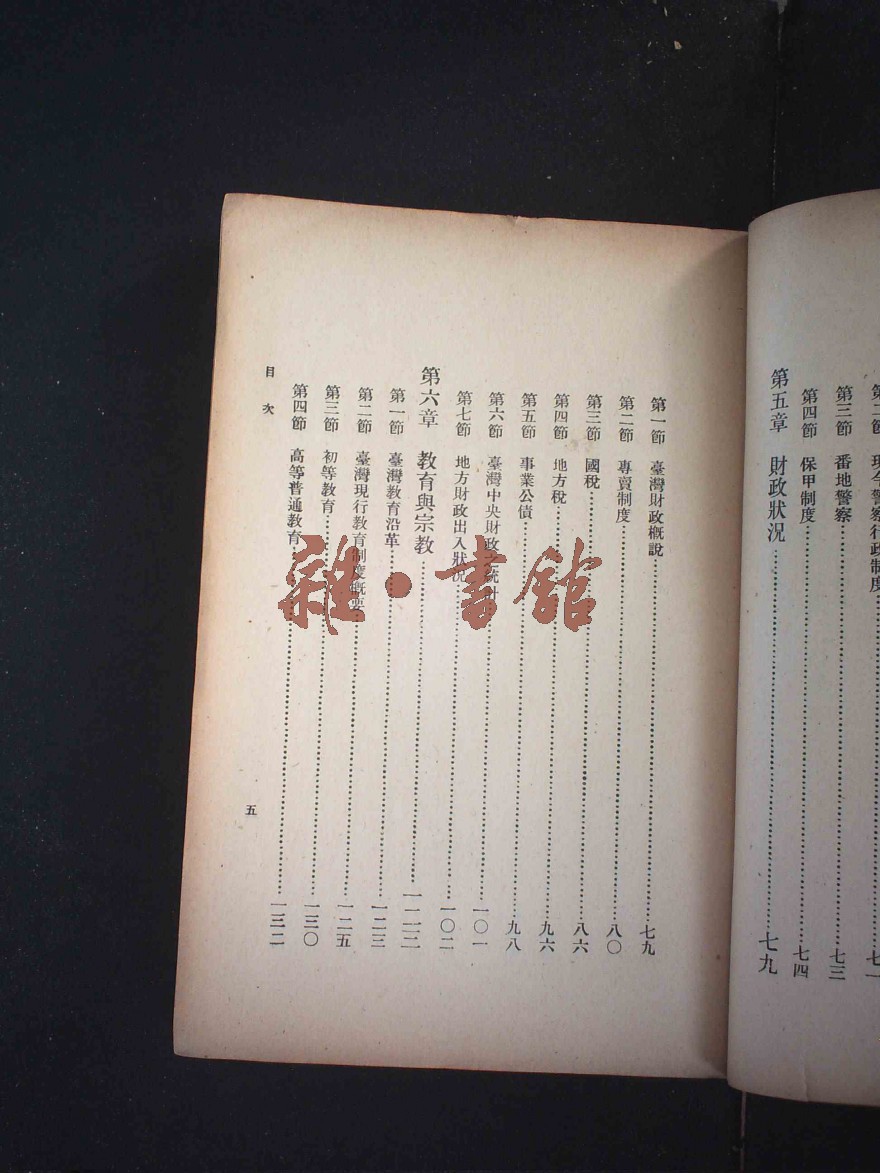 現今警察行政制度
第三節 番地警察……七三
第四節 保甲制度……七四
第五章 財政狀況……七九
第一節 臺灣財政概說……七九
第二節 專賣制度……八〇
第三節 國稅……八六
第四節 地方稅……九六
第五節 事業公債……九八
第六節 臺灣中央財政之統計……一〇一
第七節 地方財政出入狀況……一〇二
第六章 教育與宗教……一二三
第一節 臺灣教育沿革……一二三
第二節 臺灣現行教育制度概要……一二五
第三節 初等教育……一三〇
第四節 高等普通教育……一三二
目次
五
雜·書館